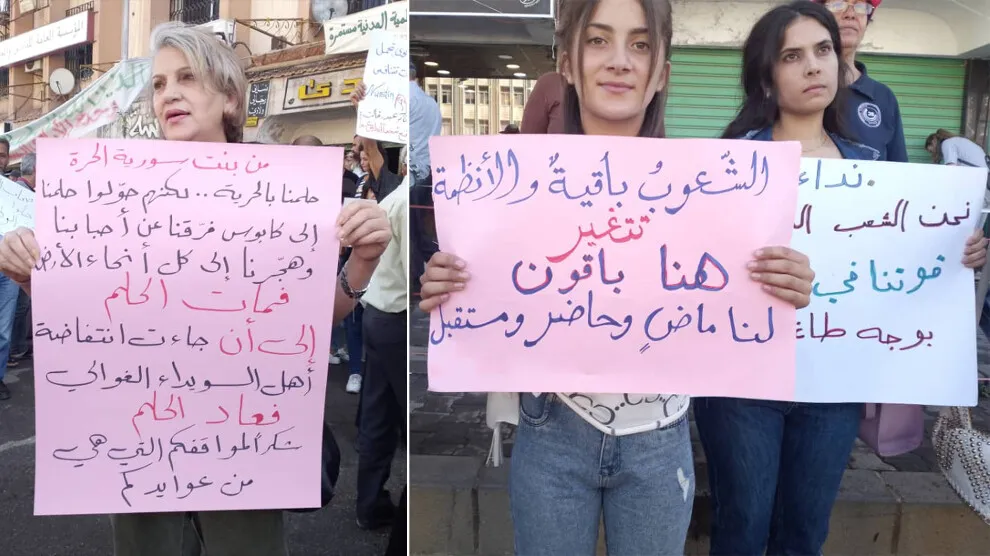 المؤسسة العامة
المدنية مستمرة
من بنت سورية الحرة
حلمنا بالحرية .. لكنهم حوّلوا حلمنا
إلى كابوس فرّقنا عن أحبابنا
وهجّرنا إلى كل أنحاء الأرض
فمات الحلم
إلى أن جاءت انتفاضة
أهل السويداء الغوالي
فعاد الحلم
شكراً لمواقفكم التي هي
من عوايدكم
الشّعوبُ باقيةٌ والأنظمة
تتغير
هنا باقون
لنا ماضٍ وحاضر ومستقبل
نداء
نحن الشعب
قوتنا في
بوجه